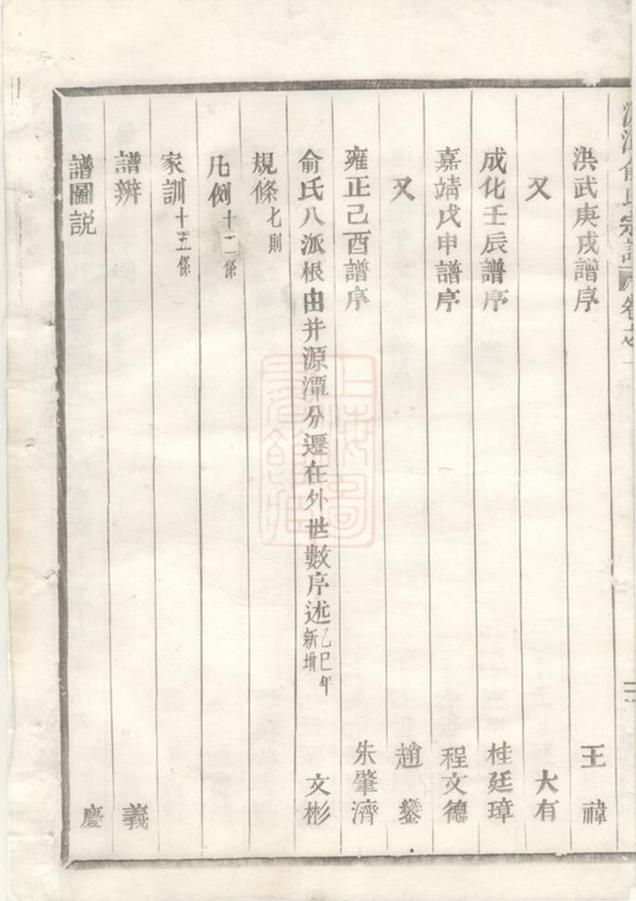 俞氏宗譜 卷之一
洪武庚戌譜序 王禕
又 大有
成化壬辰譜序 桂廷璋
嘉靖戊申譜序 程文德
又 趙鑾
雍正己酉譜序 朱肇濟
俞氏八派根由并源潭分遷在外世數序述乙巳年新增 文彬
規條七則
凡例十二條
家訓十五條
譜辨 義
譜圖説 慶